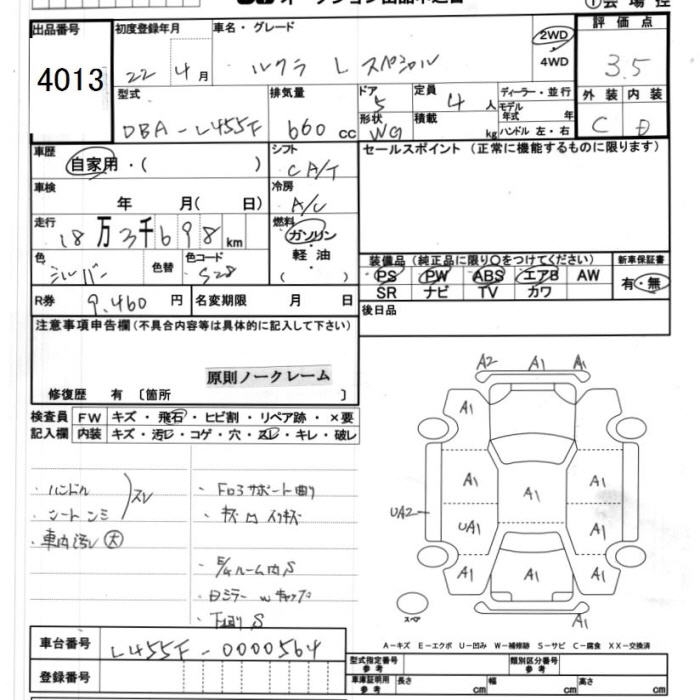 出品番号
4013
初度登録年月
22年4月
車名・グレード
ルクラ L スペシャル
2WD
4WD
評価点
3.5
外装 内装
C D
型式
DBA-L455F
排気量
660cc
ドア
5
形状
WG
定員
4人
積載
kg
ディーラー・並行
モデル年式 年
ハンドル 左・右
車歴
自家用・( )
シフト
CA/T
セールスポイント(正常に機能するものに限ります)
車検
年 月( 日)
冷房
A/C
走行
18万3千698km
燃料
ガソリン
軽油
( )
色
シルバー
色替
カラーコード
S28
装備品(純正品に限り○をつけてください)
PS PW ABS エアB AW
SR ナビ TV カワ
新車保証書
有・無
R券
9,460円
名変期限 月 日
後日品
注意事項申告欄(不具合内容等は具体的に記入して下さい)
原則ノークレーム
修復歴 有〔箇所 〕
検査員記入欄
FW キズ・飛石・ヒビ割・リペア跡・×要
内装 キズ・汚レ・コゲ・穴・スレ・キレ・破レ
・ハンドル スレ
・シートシミ
・車内汚レ 大
・下廻りS
A2 A1 A1
A1
A1 A1 A1
UA2 UA1 A1
A1 A1 A1
A1
スペア
A-キズ E-エクボ U-凹み W-補修跡 S-サビ C-腐食 XX-交換済
車台番号
L455F-0000564
登録番号
型式指定番号
参考
類別区分番号
参考
車庫証明用
参考
長さ cm
幅 cm
高さ cm